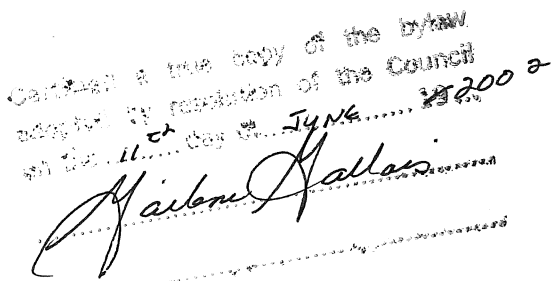 Certified a true copy of the bylaw
adopted by resolution of the Council
on the 11th day of JUNE 19 2002
Marlene Gallais